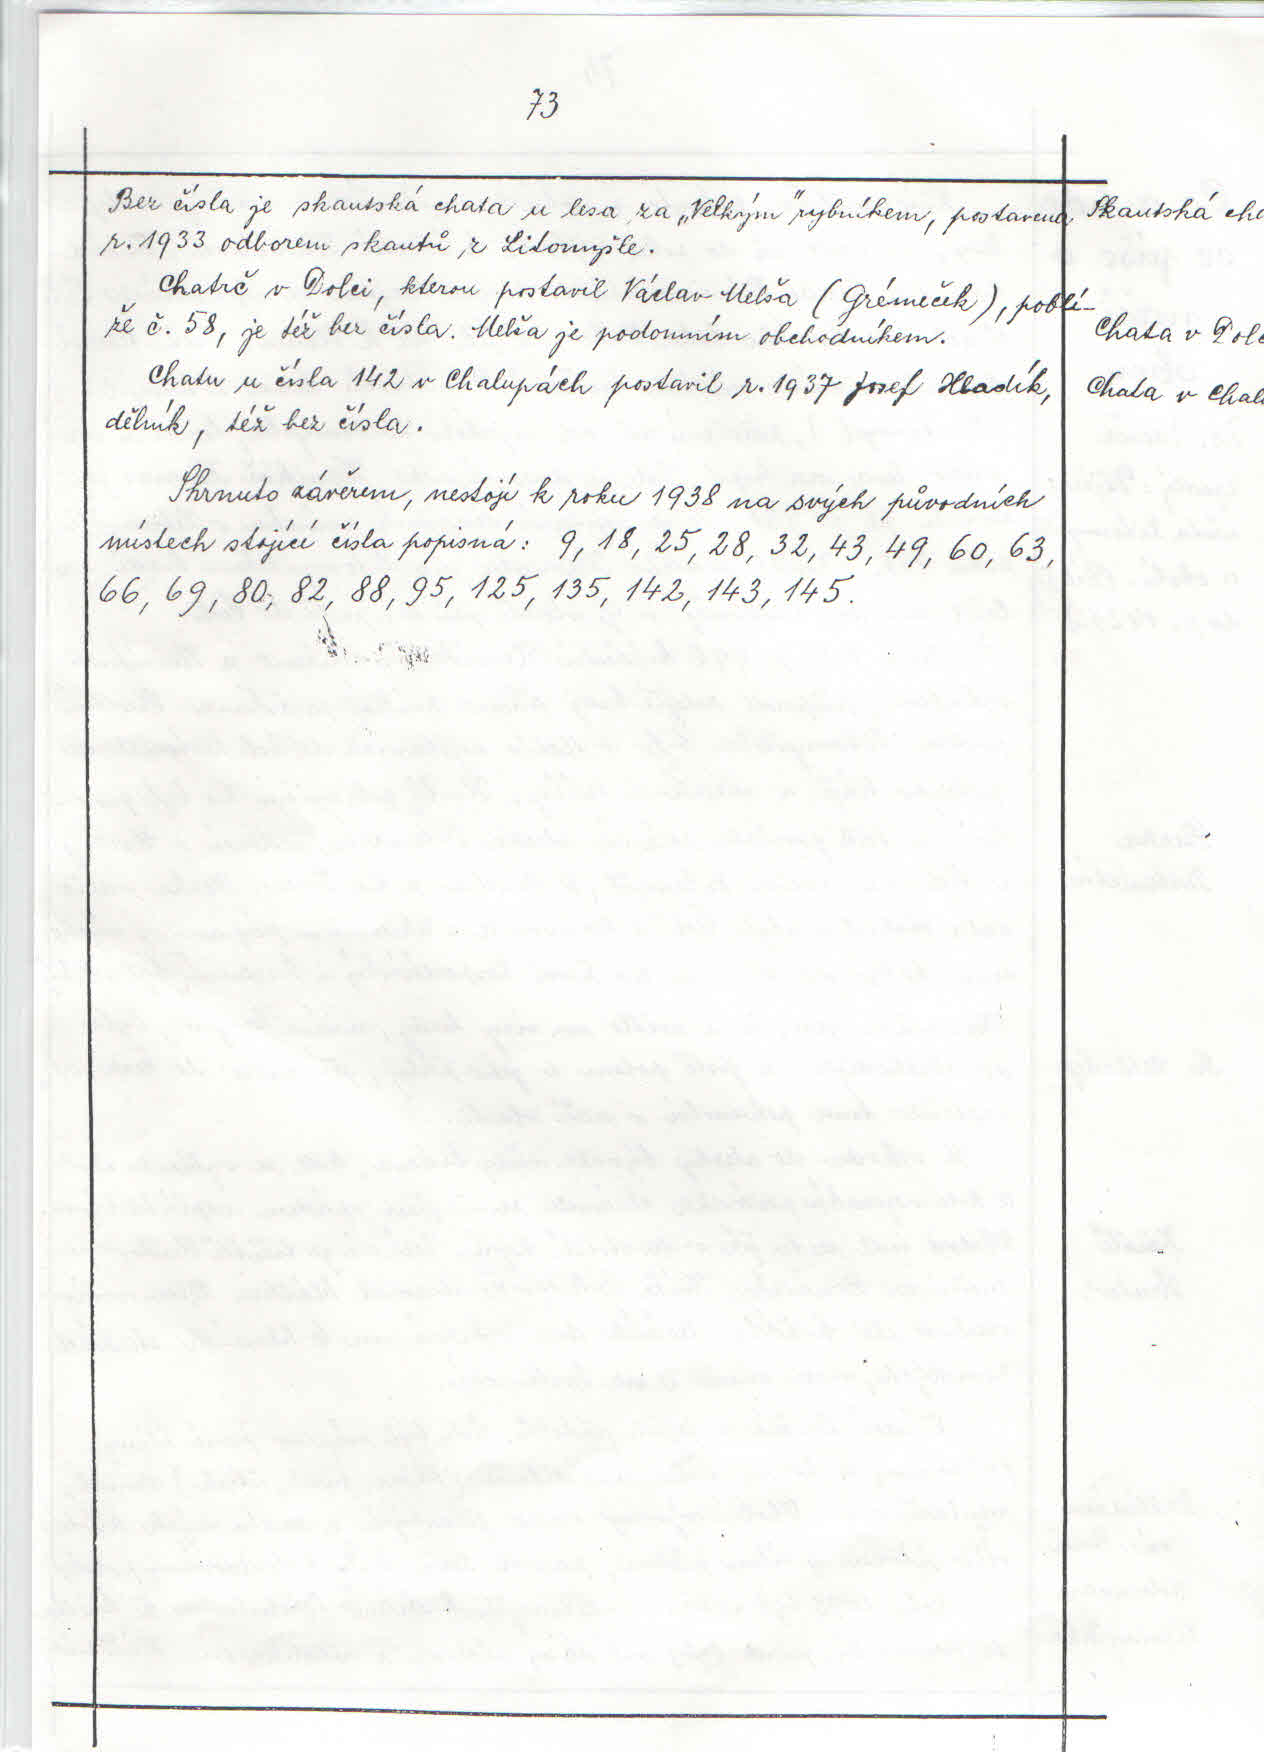 73
Bez čísla je skautská chata u lesa za „Velkým" rybníkem, postavena
r. 1933 odborem skautů z Litomyšle.
Skautská cha
Chatrč v Dolci, kterou postavil Václav Melša (Grémeček), poblí-
že č. 58, je též bez čísla. Melša je podomním obchodníkem.
Chata v Dolc
Chatu u čísla 142 v Chalupách postavil r. 1937 Josef Hladík,
dělník, též bez čísla.
Chata v Chal
Shrnuto závěrem, nestojí k roku 1938 na svých původních
místech stojící čísla popisná: 9, 18, 25, 28, 32, 43, 49, 60, 63,
66, 69, 80, 82, 88, 95, 125, 135, 142, 143, 145.